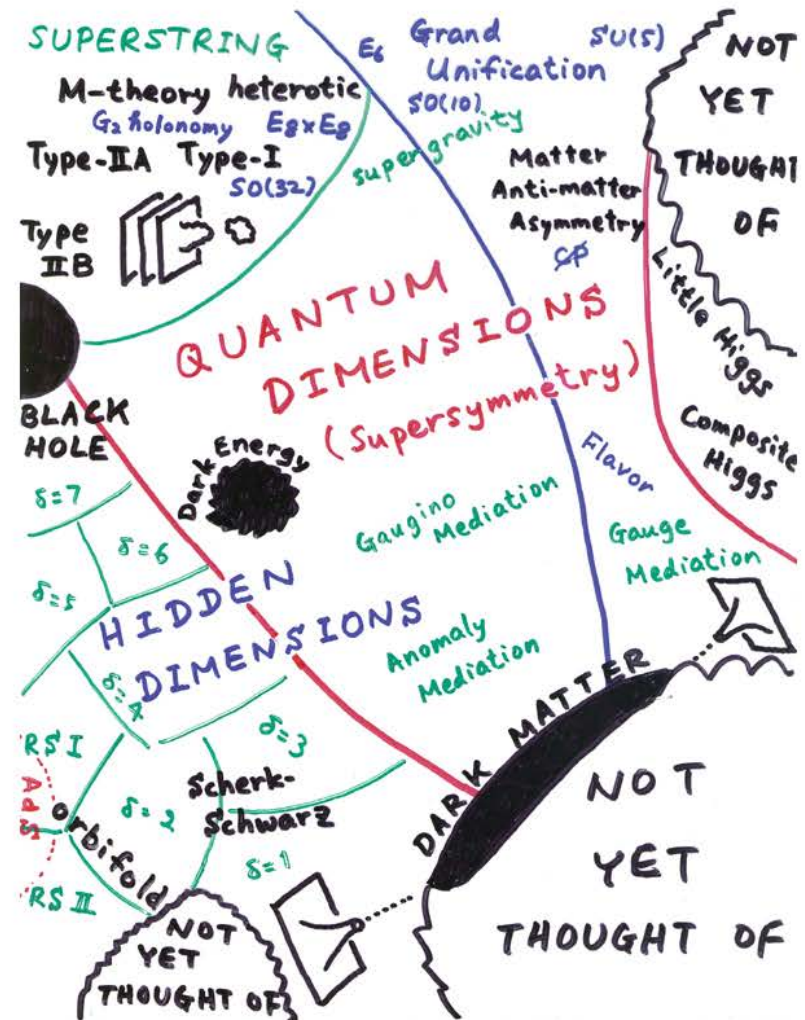 SUPERSTRING
M-theory heterotic
G₂ holonomy E₈×E₈
Type-IIA Type-I
SO(32)
Type
IIB
E₆
Grand
Unification
SU(5)
SO(10)
supergravity
Matter
Anti-matter
Asymmetry
CP
NOT
YET
THOUGHT
OF
Little Higgs
Composite
Higgs
QUANTUM
DIMENSIONS
(Supersymmetry)
BLACK
HOLE
Dark Energy
Flavor
Gaugino
Mediation
Gauge
Mediation
Anomaly
Mediation
δ=7
δ=6
δ=5
HIDDEN
DIMENSIONS
δ=4
δ=3
RS I
AdS
orbifold
δ=2
Scherk-
Schwarz
δ=1
RS II
DARK MATTER
NOT
YET
THOUGHT OF
NOT
YET
THOUGHT OF